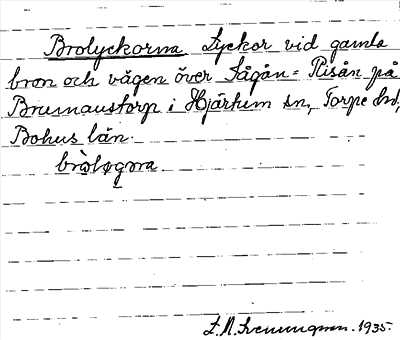 Brolyckorna Lyckor vid gamla
bron och vägen över Sågån = Risån på
Brunnaustorp i Hjärtum sn, Torpe hd,
Bohus län.
brològɷra
1935.